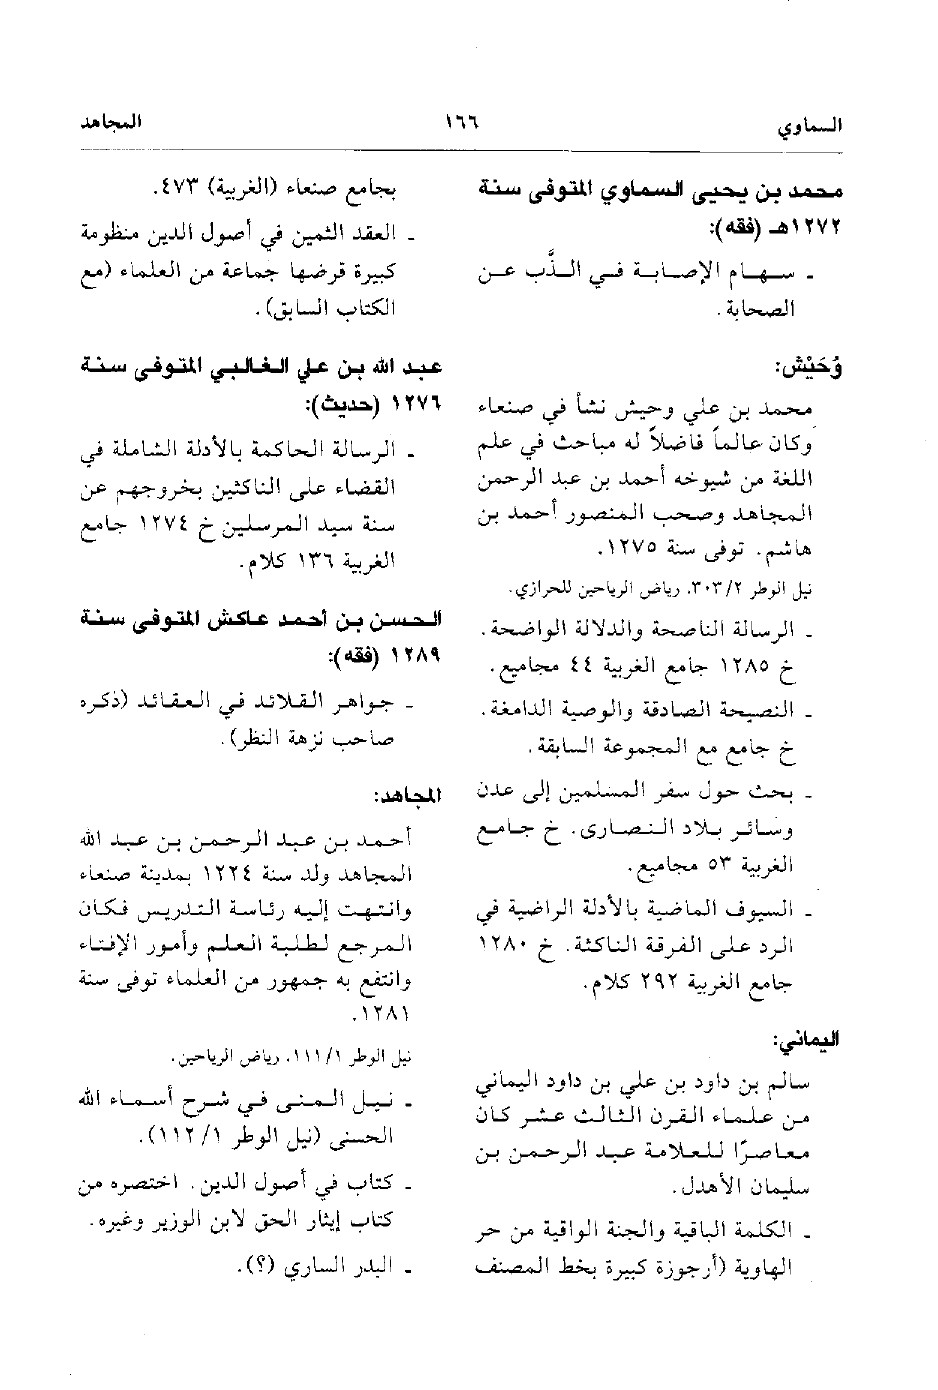 السماوي ١٦٦ المجاهد
محمد بن يحيى السماوي المتوفى سنة
١٢٧٢هـ (فقه):
ـ سهام الإصابة في الذَّب عن
الصحابة.
وُحَيْش:
محمد بن علي وحيش نشأ في صنعاء
وكان عالماً فاضلاً له مباحث في علم
اللغة من شيوخه أحمد بن عبد الرحمن
المجاهد وصحب المنصور أحمد بن
هاشم. توفى سنة ١٢٧٥.
نيل الوطر ٣٠٣/٢. رياض الرياحين للحرازي.
ـ الرسالة الناصحة والدلالة الواضحة.
خ ١٢٨٥ جامع الغربية ٤٤ مجاميع.
ـ النصيحة الصادقة والوصية الدامغة.
خ جامع مع المجموعة السابقة.
ـ بحث حول سفر المسلمين إلى عدن
وسائر بلاد النصارى. خ جامع
الغربية ٥٣ مجاميع.
ـ السيوف الماضية بالأدلة الراضية في
الرد على الفرقة الناكثة. خ ١٢٨٠
جامع الغربية ٢٩٢ كلام.
اليماني:
سالم بن داود بن علي بن داود اليماني
من علماء القرن الثالث عشر كان
معاصرًا للعلامة عبد الرحمن بن
سليمان الأهدل.
ـ الكلمة الباقية والجنة الواقية من حر
الهاوية (أرجوزة كبيرة بخط المصنف
بجامع صنعاء (الغربية) ٤٧٣.
ـ العقد الثمين في أصول الدين منظومة
كبيرة قرضها جماعة من العلماء (مع
الكتاب السابق).
عبد الله بن علي الغالبي المتوفى سنة
١٢٧٦ (حديث):
ـ الرسالة الحاكمة بالأدلة الشاملة في
القضاء على الناكثين بخروجهم عن
سنة سيد المرسلين خ ١٢٧٤ جامع
الغربية ١٣٦ كلام.
الحسن بن أحمد عاكش المتوفى سنة
١٢٨٩ (فقه):
ـ جواهر القلائد في العقائد (ذكره
صاحب نزهة النظر).
المجاهد:
أحمد بن عبد الرحمن بن عبد الله
المجاهد ولد سنة ١٢٢٤ بمدينة صنعاء
وانتهت إليه رئاسة التدريس فكان
المرجع لطلبة العلم وأمور الإفتاء
وانتفع به جمهور من العلماء توفى سنة
١٢٨١.
نيل الوطر ١١١/١. رياض الرياحين.
ـ نيل المنى في شرح أسماء الله
الحسنى (نيل الوطر ١١٢/١).
ـ كتاب في أصول الدين. اختصره من
كتاب إيثار الحق لابن الوزير وغيره.
ـ البدر الساري (؟).